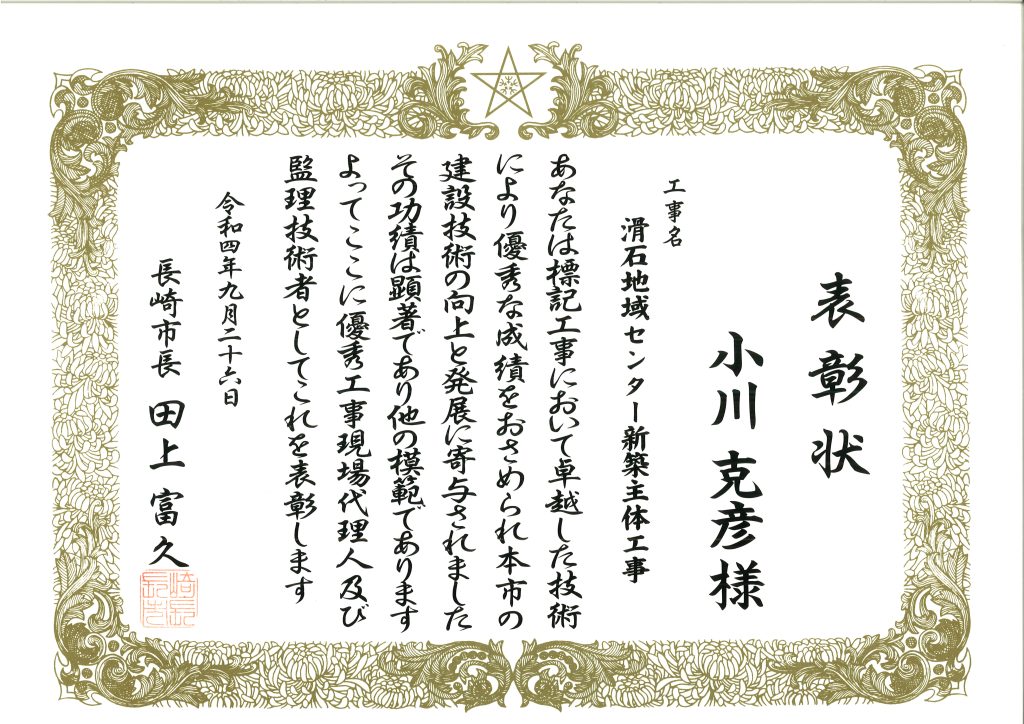 表彰状
小川克彦様
工事名
滑石地域センター新築主体工事
あなたは標記工事において卓越した技術
により優秀な成績をおさめられ本市の
建設技術の向上と発展に寄与されました
その功績は顕著であり他の模範であります
よってここに優秀工事現場代理人及び
監理技術者としてこれを表彰します
令和四年九月二十六日
長崎市長 田上富久